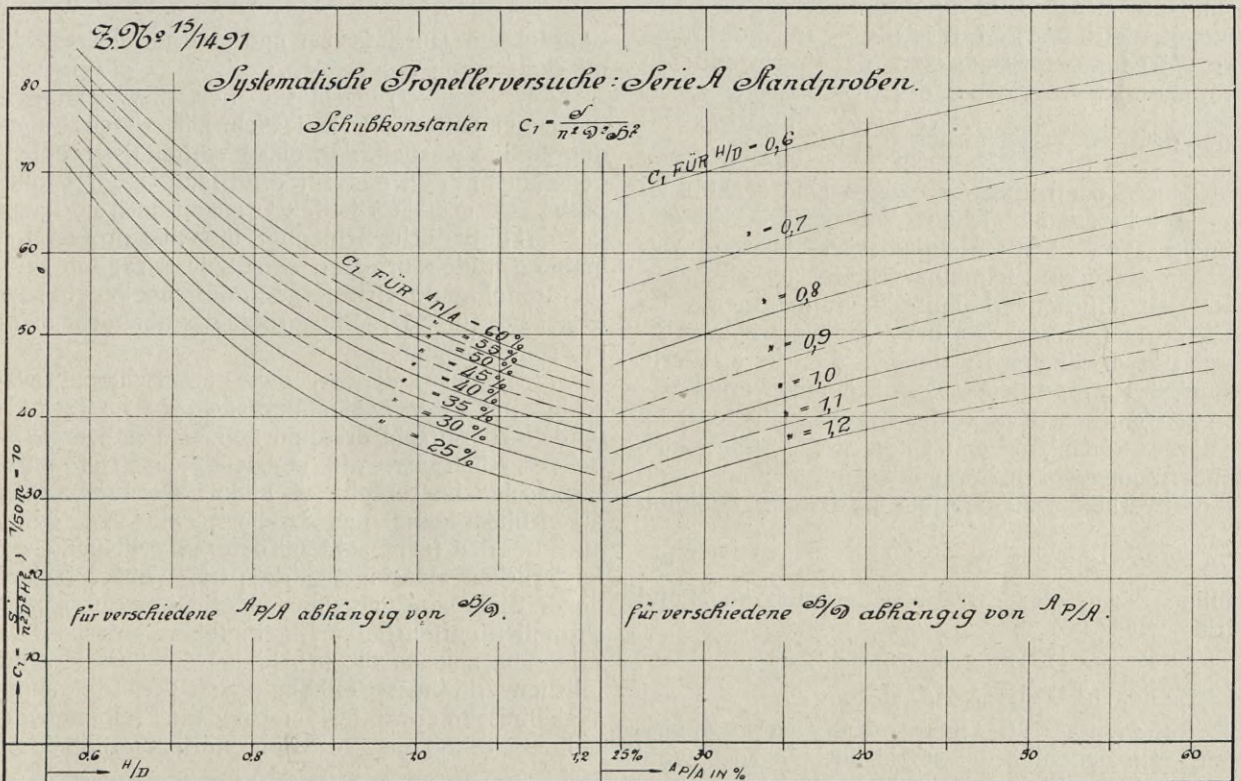 Z.Nº 15/1491
Systematische Propellerversuche: Serie A Standproben.
Schubkonstanten C₁ = S / n² D² H²
80
70
60
50
40
30
20
10
C₁ FÜR AP/A = 60 %
" = 55 %
" = 50 %
" = 45 %
" = 40 %
" = 35 %
" = 30 %
" = 25 %
C₁ FÜR H/D = 0,6
" = 0,7
" = 0,8
" = 0,9
" = 1,0
" = 1,1
" = 1,2
für verschiedene AP/A abhängig von H/D.
für verschiedene H/D abhängig von AP/A.
C₁ = S / n² D² H² ) 1/50 m = 10
0,6 0,8 1,0 1,2
H/D
25% 30 40 50 60
AP/A IN %